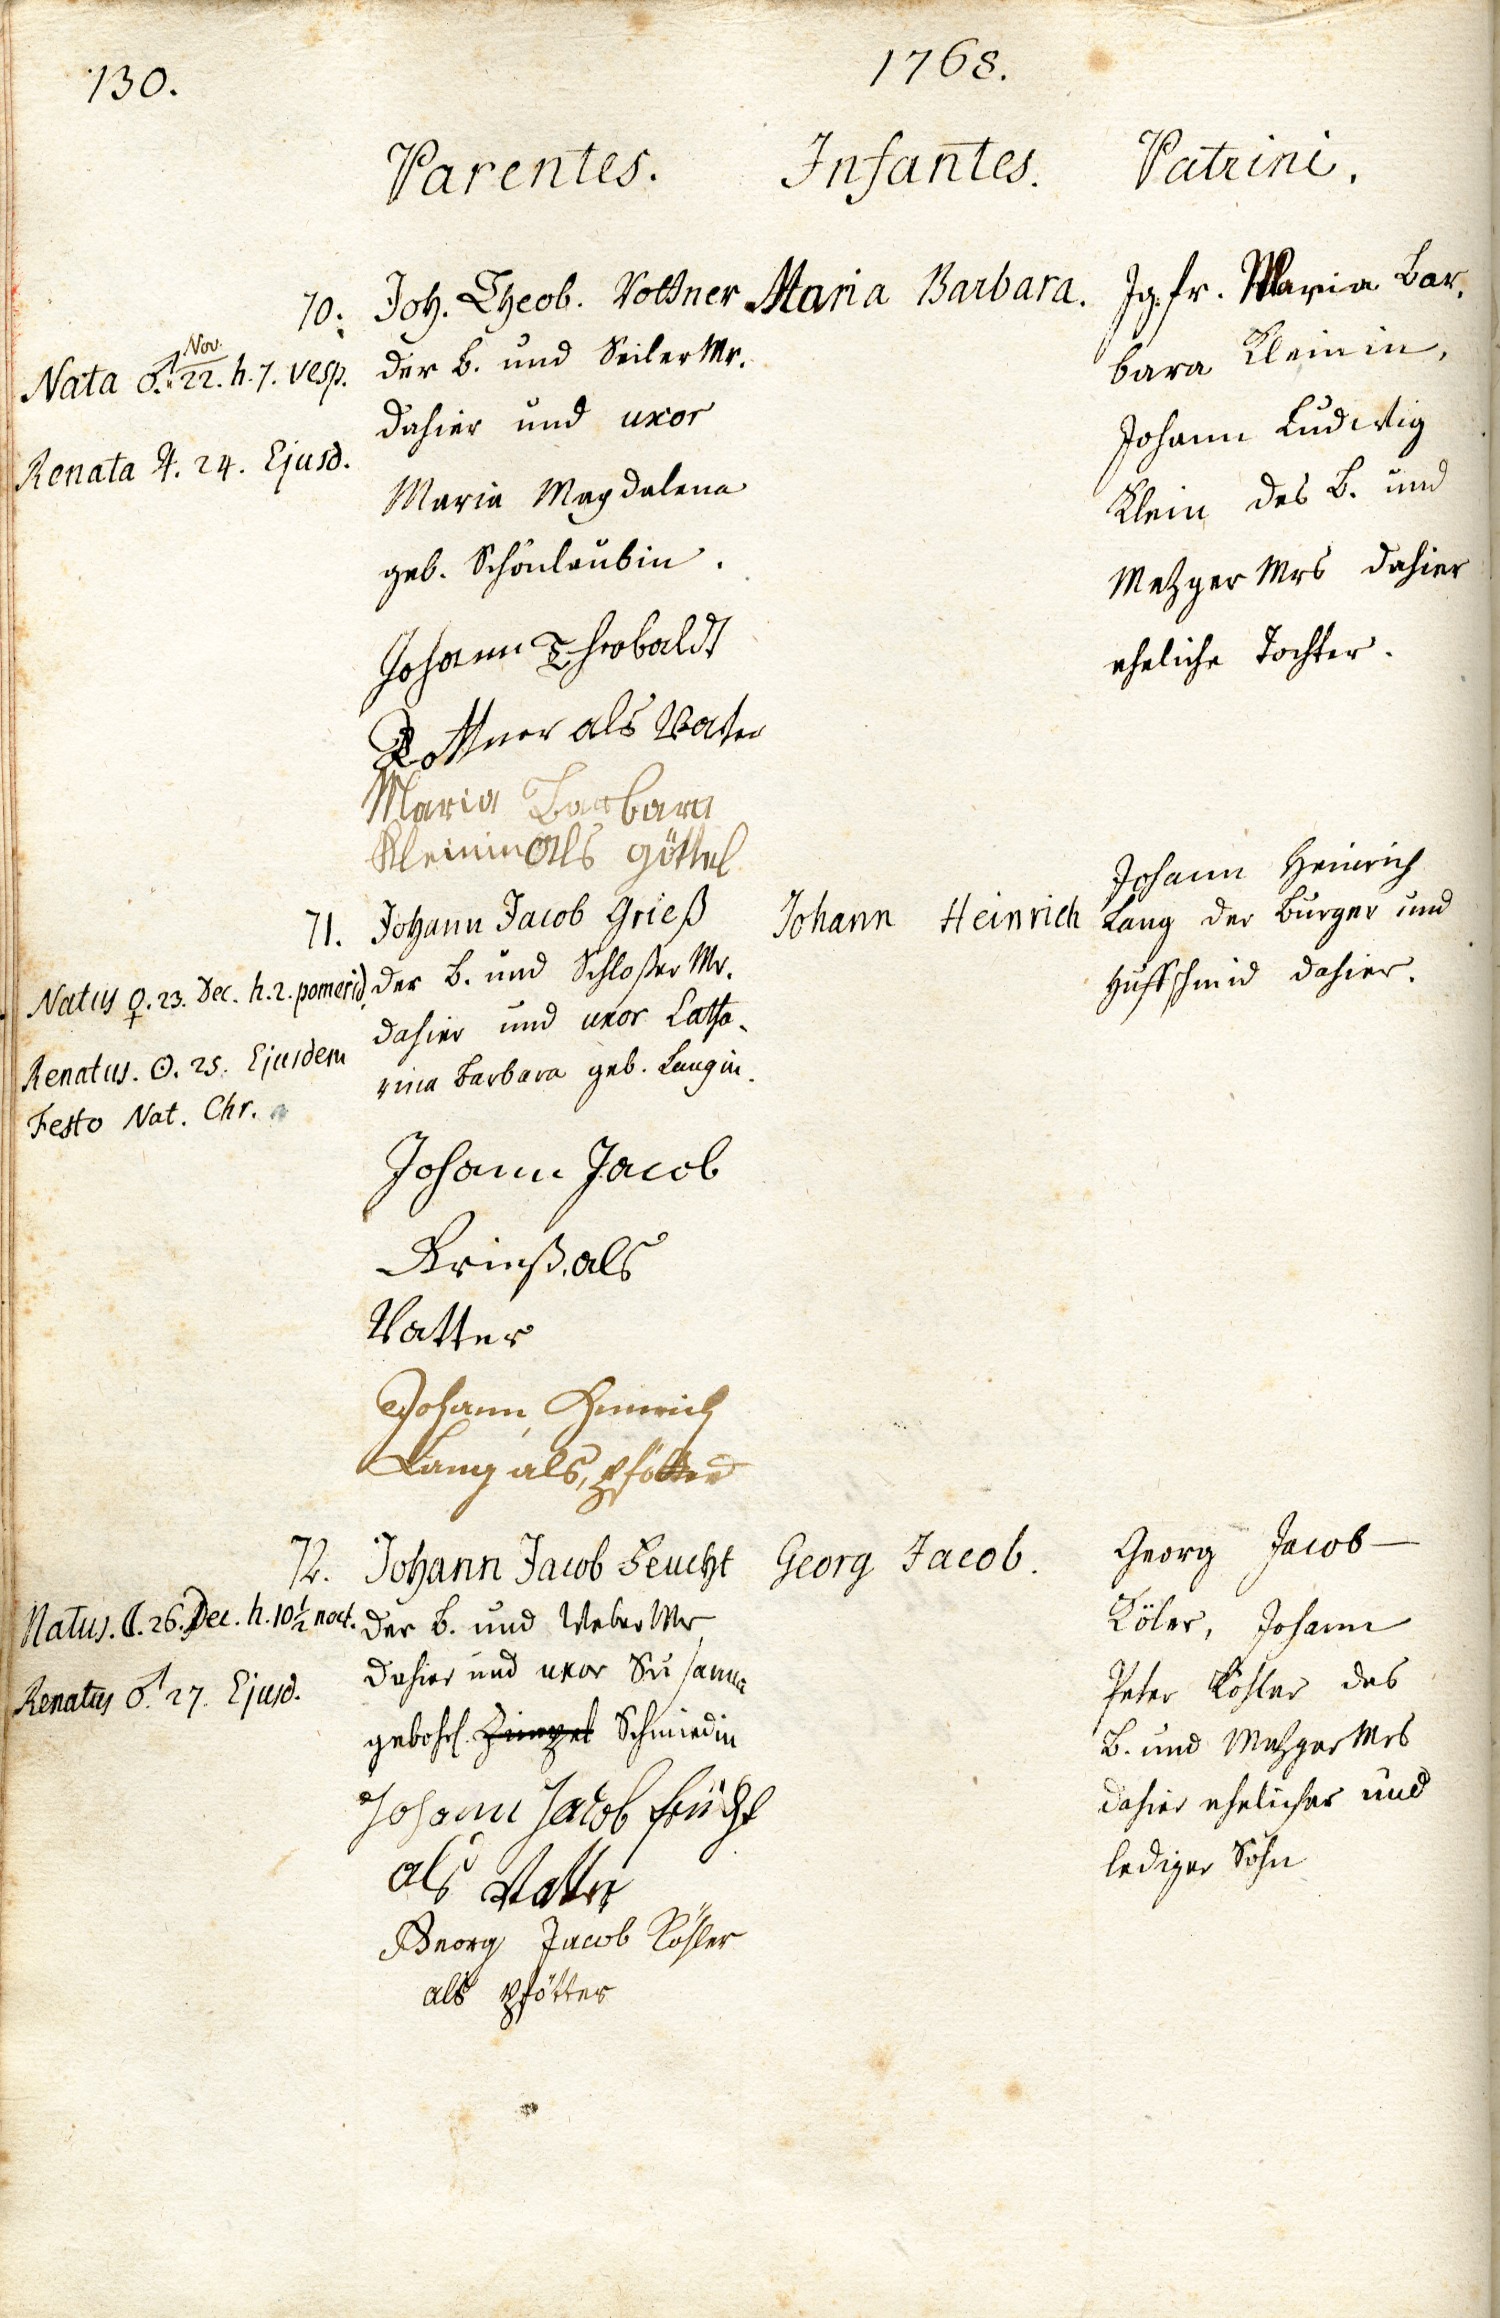 130.
1768.
Parentes. Infantes. Patrini.
70. Joh. Theob. Vottner Maria Barbara. Jgfr. Maria Bar,
Nata ♂. 22. Nov. h. 7. vesp.
Renata ♃. 24. Ejusd.
der B. und Seiler Mr.
dahier und uxor
Maria Magdalena
geb. Schönlaubin.
bara Kleinin,
Johann Ludwig
Klein des B. und
Metzger Mrs dahier
eheliche Tochter.
Johann Theobaldt
Vottner als Vatter
Maria Barbara
Kleinin als göttel
71. Johann Jacob Grieß Johann Heinrich
Natus ♀. 23. Dec. h. 2. pomerid.
Renatus. ☉. 25. Ejusdem
Festo Nat. Chr.
der B. und Schloßer Mr.
dahier und uxor Catha,
rina Barbara geb. Langin.
Johann Heinrich
Lang der Burger und
Huffschmid dahier.
Johann Jacob
Krieß als
Vatter
Johann Heinrich
Lang als, pfötter
72. Johann Jacob Feucht Georg Jacob.
Natus. ☾. 26. Dec. h. 10½ noct.
Renatus ♂. 27. Ejusd.
der B. und Weber Mr
dahier und uxor Susanna
gebohrl. Schmiedin
Georg Jacob
Köler, Johann
Peter Köhler des
B. und Metzger Mrs
dahier ehelicher und
lediger Sohn
Johann Jacob feücht
als Vatter
Georg Jacob Köhler
als pfötter